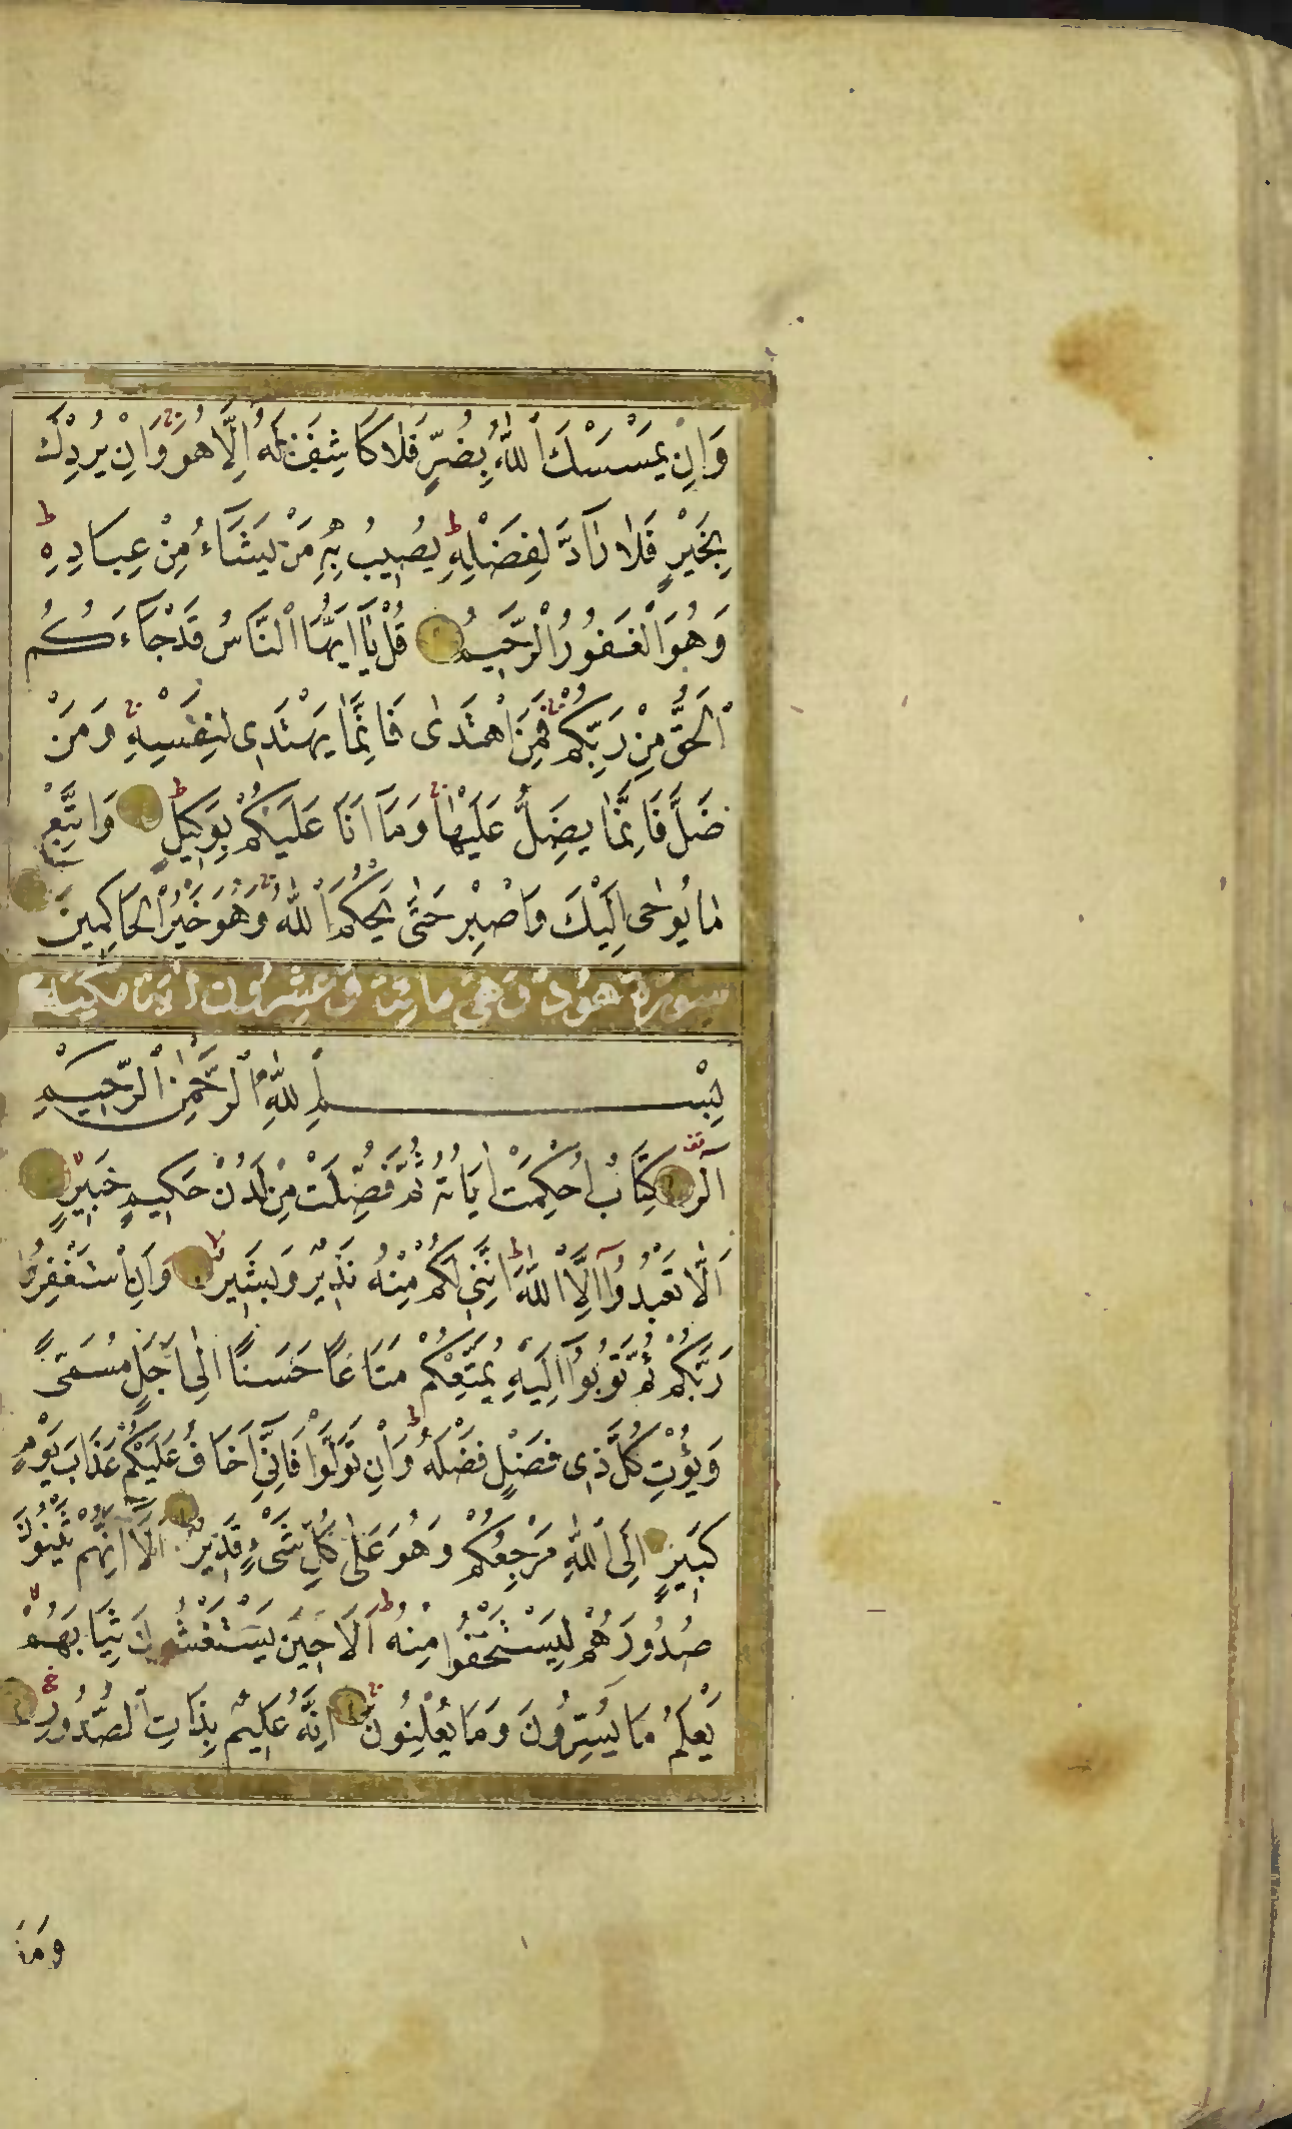 وَاِنْ يَمْسَسْكَ اللّٰهُ بِضُرٍّ فَلَا كَاشِفَ لَهُ اِلَّا هُوَ ۚ وَاِنْ يُرِدْكَ
بِخَيْرٍ فَلَا رَآدَّ لِفَضْلِهِ ط يُصِيبُ بِهِ مَنْ يَشَآءُ مِنْ عِبَادِهِ ط
وَهُوَ الْغَفُورُ الرَّحِيمُ قُلْ يَآ اَيُّهَا النَّاسُ قَدْ جَآءَكُمُ
الْحَقُّ مِنْ رَبِّكُمْ ۚ فَمَنِ اهْتَدٰى فَاِنَّمَا يَهْتَدِى لِنَفْسِهِ ۚ وَمَنْ
ضَلَّ فَاِنَّمَا يَضِلُّ عَلَيْهَا ۚ وَمَآ اَنَا عَلَيْكُمْ بِوَكِيلٍ ط وَاتَّبِعْ
مَا يُوحٰى اِلَيْكَ وَاصْبِرْ حَتّٰى يَحْكُمَ اللّٰهُ ۚ وَهُوَ خَيْرُ الْحَاكِمِينَ
سورة هود وهى مائة وعشرون آية مكية
بِسْمِ اللّٰهِ الرَّحْمٰنِ الرَّحِيمِ
آلر كِتَابٌ اُحْكِمَتْ اٰيَاتُهُ ثُمَّ فُصِّلَتْ مِنْ لَدُنْ حَكِيمٍ خَبِيرٍ لا
اَلَّا تَعْبُدُوٓا اِلَّا اللّٰهَ ط اِنَّنِى لَكُمْ مِنْهُ نَذِيرٌ وَبَشِيرٌ لا وَاَنِ اسْتَغْفِرُوا
رَبَّكُمْ ثُمَّ تُوبُوٓا اِلَيْهِ يُمَتِّعْكُمْ مَتَاعًا حَسَنًا اِلٰٓى اَجَلٍ مُسَمًّى
وَيُؤْتِ كُلَّ ذِى فَضْلٍ فَضْلَهُ ط وَاِنْ تَوَلَّوْا فَاِنِّىٓ اَخَافُ عَلَيْكُمْ عَذَابَ يَوْمٍ
كَبِيرٍ اِلَى اللّٰهِ مَرْجِعُكُمْ وَهُوَ عَلٰى كُلِّ شَىْءٍ قَدِيرٌ اَلَآ اِنَّهُمْ يَثْنُونَ
صُدُورَهُمْ لِيَسْتَخْفُوا مِنْهُ ط اَلَا حِينَ يَسْتَغْشُونَ ثِيَابَهُمْ لا
يَعْلَمُ مَا يُسِرُّونَ وَمَا يُعْلِنُونَ ۚ اِنَّهُ عَلِيمٌ بِذَاتِ الصُّدُورِ
وَمَا